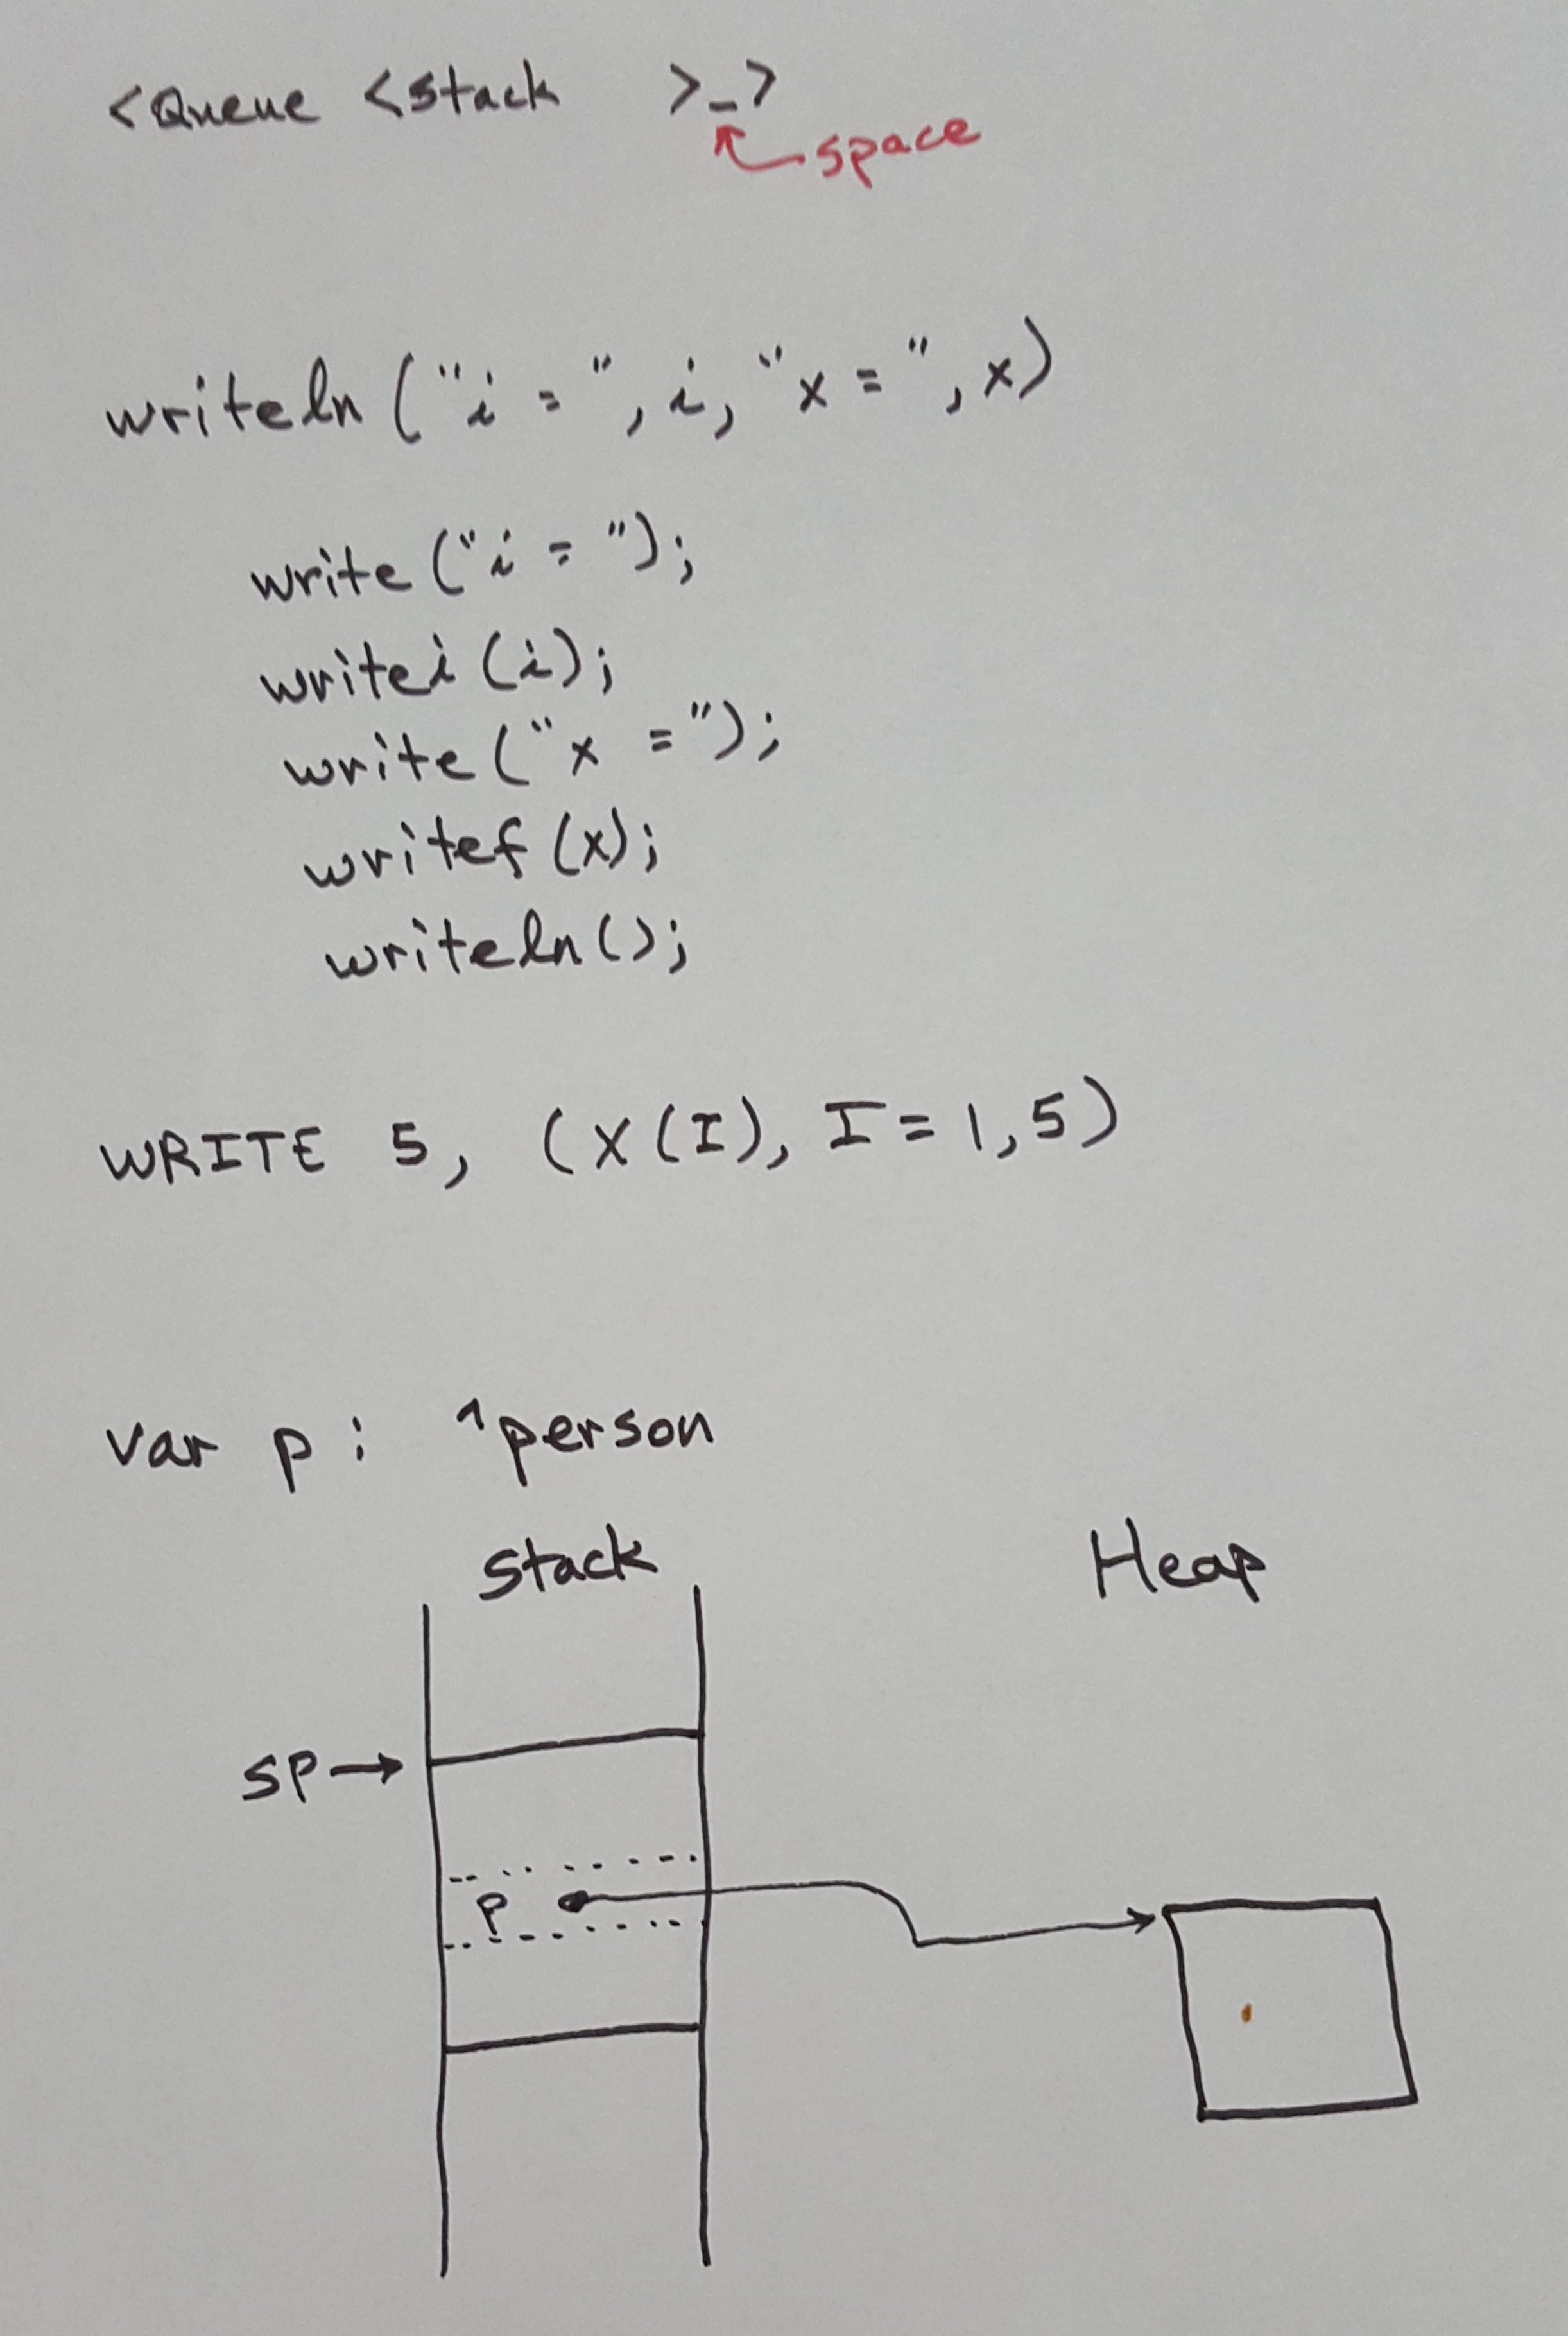 <Queue <stack >_>
space
writeln ("i = ", i, "x = ", x)
write ("i = ");
writei (i);
write ("x =");
writef (x);
writeln();
WRITE 5, (X(I), I=1,5)
var p: ^person
Stack Heap
SP
P